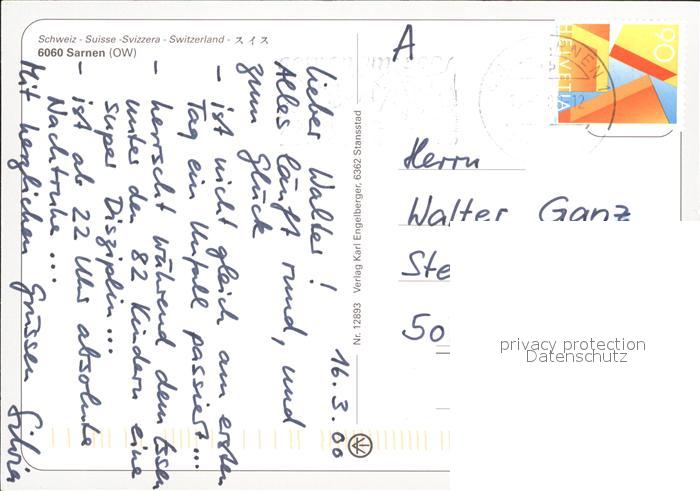 Schweiz - Suisse - Svizzera - Switzerland - スイス
6060 Sarnen (OW)
16.3.00
Lieber Walter!
Alles läuft rund, und
zum Glück
- ist nicht gleich am ersten
Tag ein Unfall passiert...
- herrscht während dem Essen
unter den 82 Kindern eine
super Disziplin...
- ist ab 22 Uhr absolute
Nachtruhe...
Mit herzlichen Grüssen Silvia
Nr. 12893 Verlag Karl Engelberger, 6362 Stansstad
A
90
HELVETIA
Herrn
Walter Ganz
Ste
50
privacy protection
Datenschutz